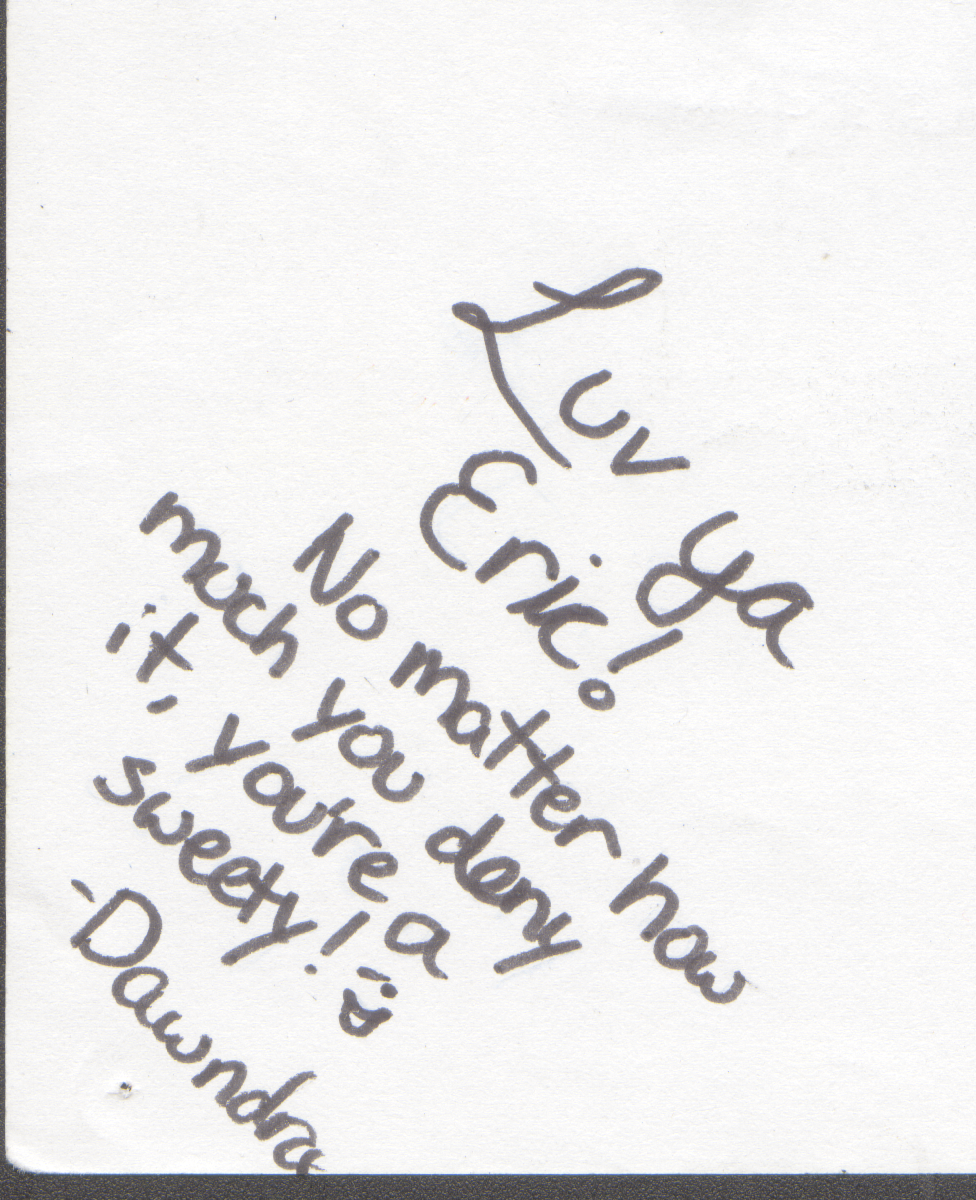 Luv ya
Eric!
No matter how
much you deny
it, you're a
sweety!
-Dawndra